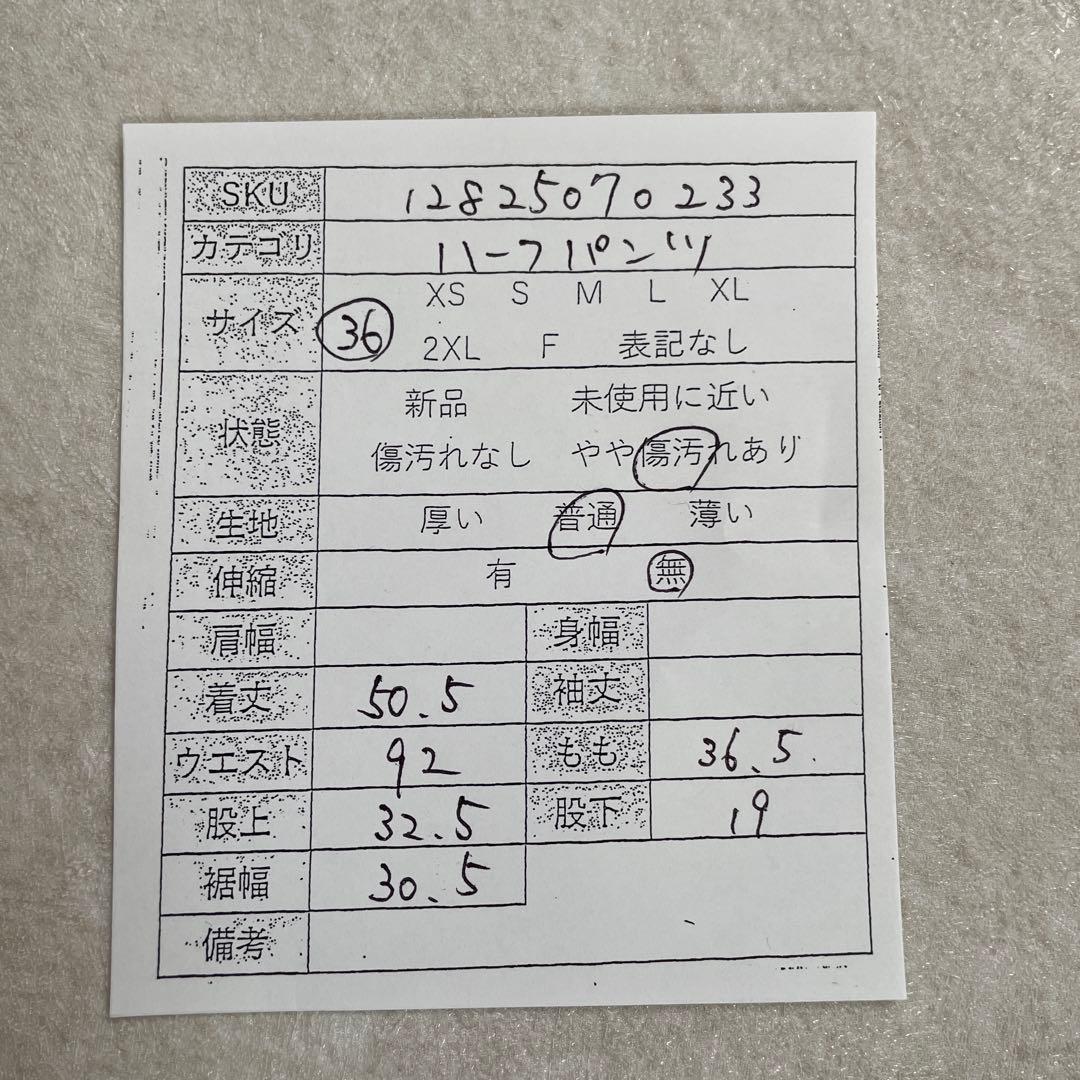 SKU 12825070233
カテゴリ ハーフパンツ
サイズ 36 XS S M L XL
2XL F 表記なし
状態 新品 未使用に近い
傷汚れなし やや傷汚れあり
生地 厚い 普通 薄い
伸縮 有 無
肩幅 身幅
着丈 50.5 袖丈
ウエスト 92 もも 36.5
股上 32.5 股下 19
裾幅 30.5
備考